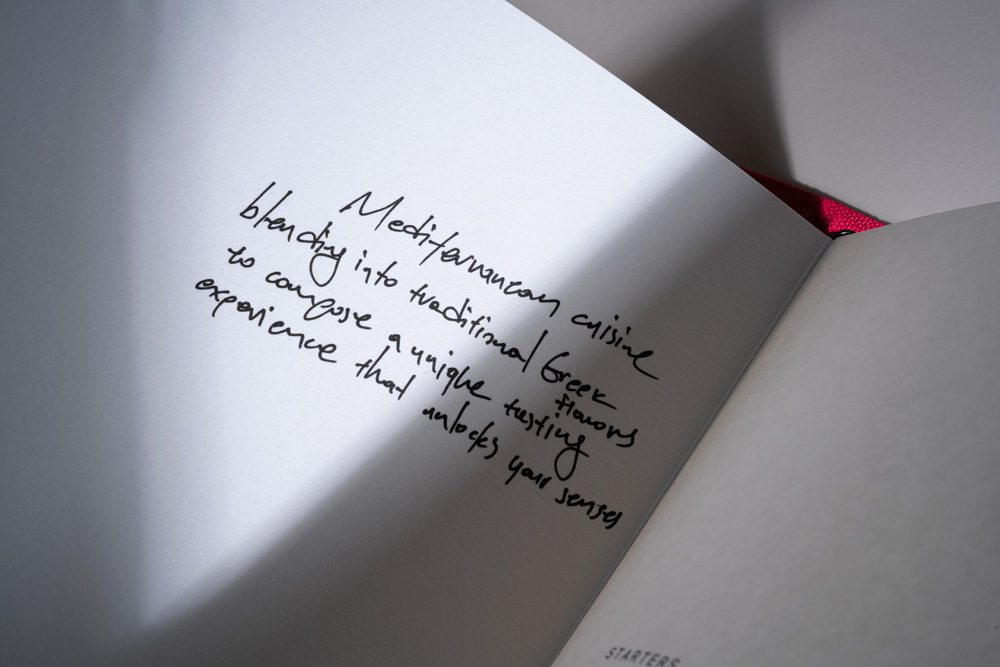 Mediterranean cuisine
blending into traditional Greek
flavors
to compose a unique tasting
experience that unlocks your senses
STARTERS